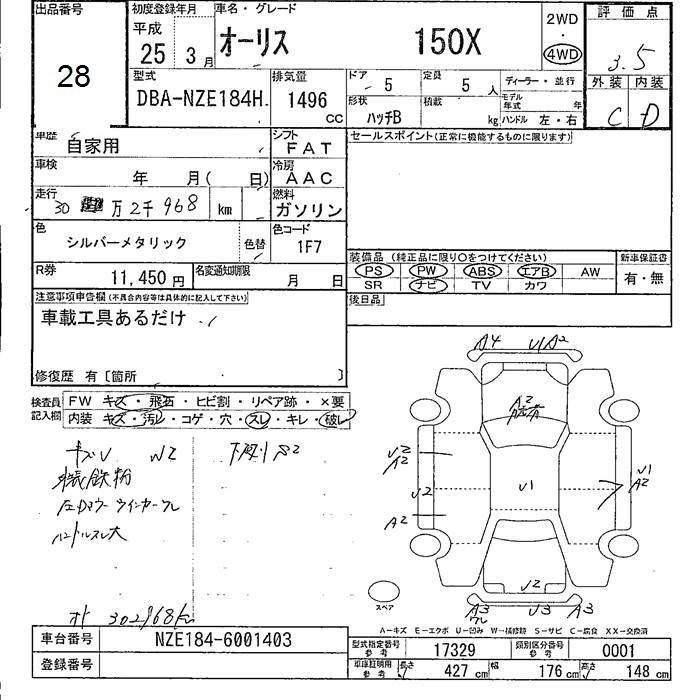 出品番号
28
初度登録年月
平成
25年 3月
車名・グレード
オーリス 150X
2WD
・
4WD
評価点
3.5
外装 内装
C D
型式
DBA-NZE184H
排気量
1496
cc
ドア 5
定員 5人
ディーラー・並行
形状 ハッチB
積載 kg
モデル年式 年
ハンドル 左・右
車歴 自家用
シフト FAT
セールスポイント(正常に機能するものに限ります)
車検 年 月( 日)
冷房 AAC
走行 30 万2千968 km
燃料 ガソリン
色 シルバーメタリック
色替
色コード 1F7
装備品(純正品に限り○をつけてください)
新車保証書
PS PW ABS エアB AW
有・無
SR ナビ TV カワ
R券 11,450円
名変通知期限 月 日
後日品
注意事項申告欄(不具合内容等は具体的に記入して下さい)
車載工具あるだけ
修復歴 有〔箇所 〕
検査員記入欄
FW キズ・飛石・ヒビ割・リペア跡・×要
内装 キズ・汚レ・コゲ・穴・スレ・キレ・破レ
キズU W2
下廻りS2
鉄粉
左Dミラーウインカーワレ
ハンドルスレ大
オト 302968km
A4 U1A2
A2
U2
A2
U2
A2
U1
U1
A2
U2
A3
ワレ
U3 A3
スペア
A-キズ E-エクボ U-凹み W-補修跡 S-サビ C-腐食 XX-交換済
車台番号 NZE184-6001403
登録番号
型式指定番号 参考 17329
類別区分番号 参考 0001
車庫証明用 参考 長さ 427 cm 幅 176 cm 高さ 148 cm